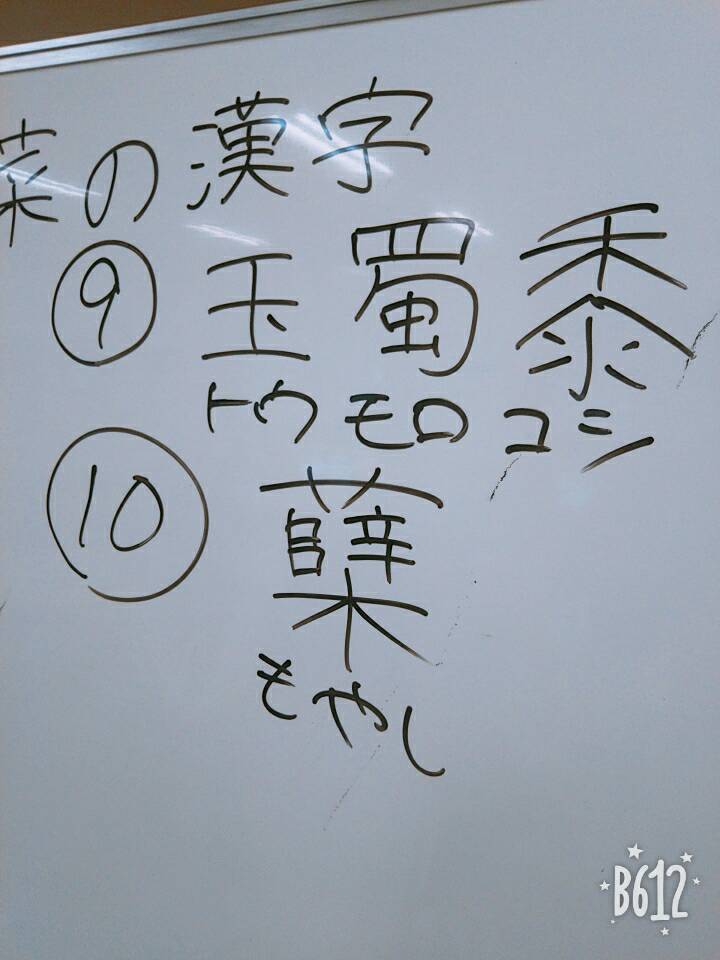 菜の漢字
⑨ 玉蜀黍
トウモロコシ
⑩ 蘖
もやし
B612